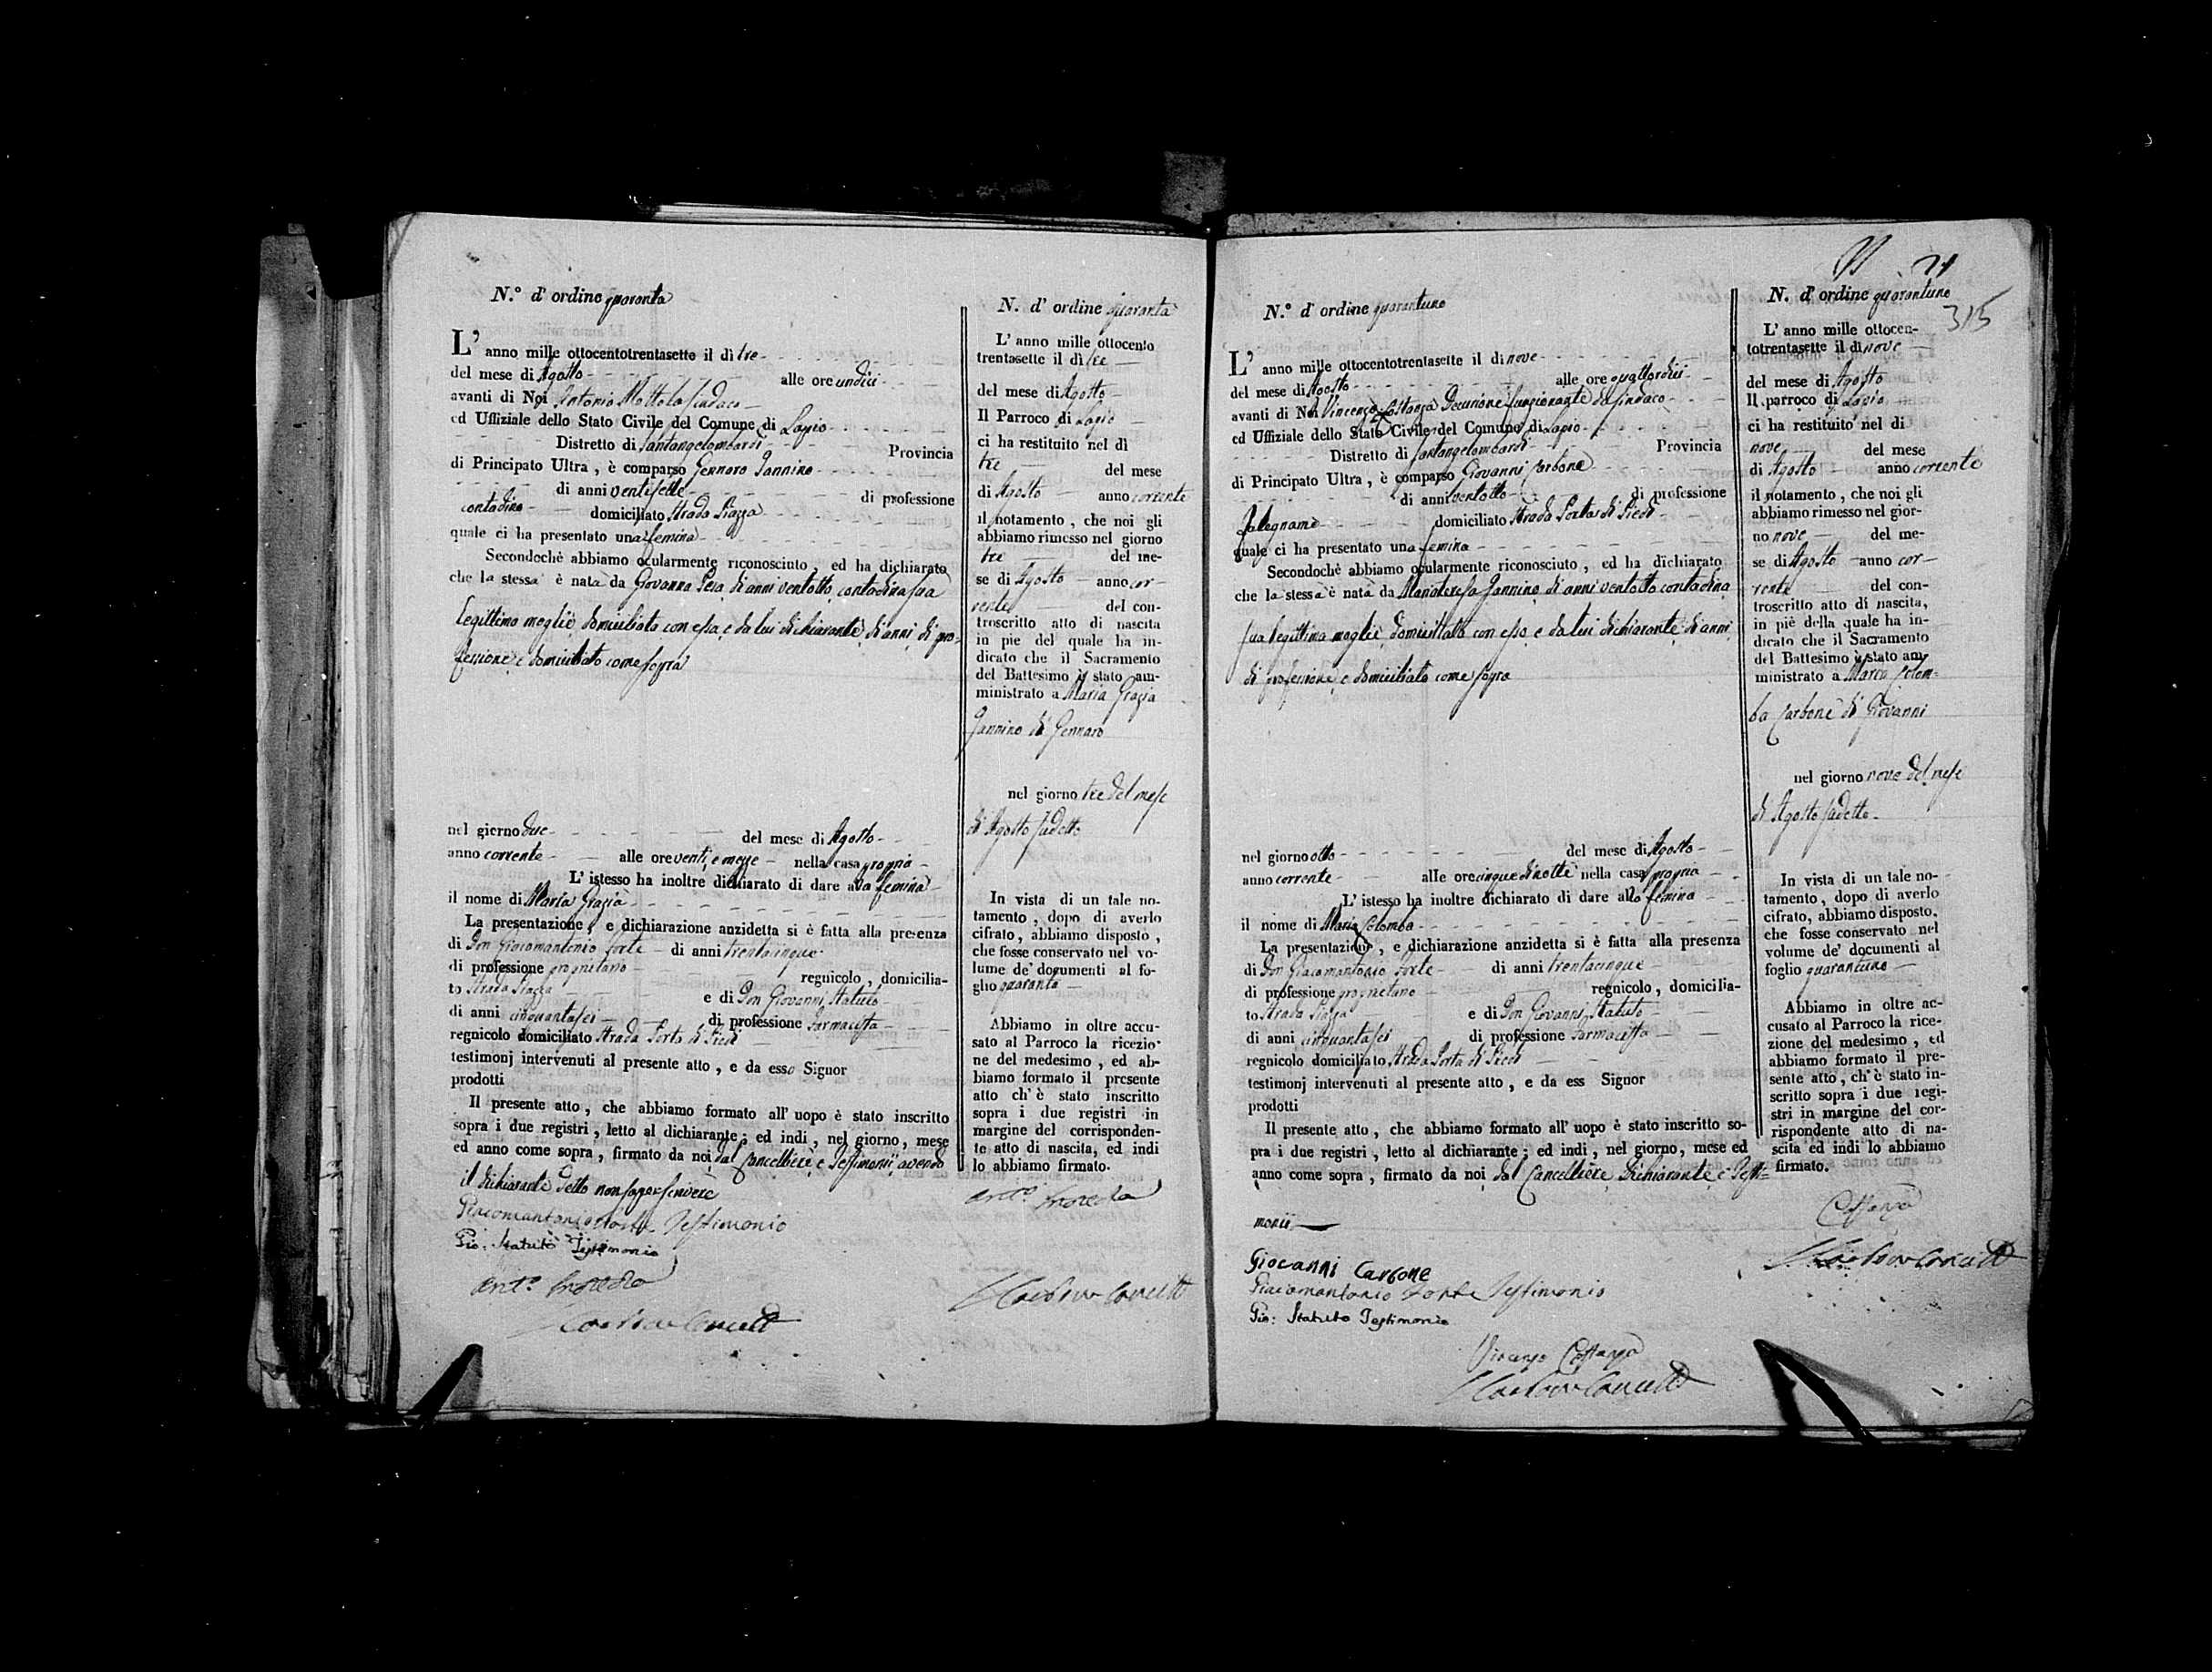 N.º d' ordine quaranta
L' anno mille ottocentotrentasette il dì tre
del mese di Agosto alle ore undici
avanti di Noi Antonio Mottola Sindaco
ed Uffiziale dello Stato Civile del Comune di Lapio
Distretto di Santangelombardi Provincia
di Principato Ultra, è comparso Gennaro Jannino
di anni ventisette di professione
contadino domiciliato Strada Piazza
quale ci ha presentato una femina
Secondochè abbiamo ocularmente riconosciuto, ed ha dichiarato
che la stessa è nata da Giovanna Pepa di anni ventotto contadina sua
legittima moglie domiciliata con essa, e da lui dichiarante di anni di pro-
fessione e domiciliato come sopra
nel giorno due del mese di Agosto
anno corrente alle ore venti, e mezze nella casa propria
L' istesso ha inoltre dichiarato di dare alla femina
il nome di Maria Grazia
La presentazione, e dichiarazione anzidetta si è fatta alla presenza
di Don Giacomantonio Forte di anni trentacinque
di professione proprietario regnicolo, domicilia-
to Strada Piazza e di Don Giovanni Statuto
di anni cinquantasei di professione Farmacista
regnicolo domiciliato Strada Porta di Piedi
testimonj intervenuti al presente atto, e da esso Signor
prodotti
Il presente atto, che abbiamo formato all' uopo è stato inscritto
sopra i due registri, letto al dichiarante; ed indi, nel giorno, mese
ed anno come sopra, firmato da noi dal Cancelliere, e Testimonii, avendo
il dichiarante detto non saper scrivere
Giacomantonio Forte Testimonio
Gio: Statuto Testimonio
Ant.º Mottola
N. d' ordine quaranta
L' anno mille ottocento
trentasette il dì tre
del mese di Agosto
Il Parroco di Lapio
ci ha restituito nel dì
tre del mese
di Agosto anno corrente
il notamento, che noi gli
abbiamo rimesso nel giorno
tre del me-
se di Agosto anno cor-
rente del con-
troscritto atto di nascita
in pie del quale ha in-
dicato che il Sacramento
del Battesimo è stato am-
ministrato a Maria Grazia
Jannino di Gennaro
nel giorno tre del mese
di Agosto sudetto
In vista di un tale no-
tamento, dopo di averlo
cifrato, abbiamo disposto,
che fosse conservato nel vo-
lume de' documenti al fo-
glio quaranta
Abbiamo in oltre accu-
sato al Parroco la ricezio-
ne del medesimo, ed ab-
biamo formato il presente
atto ch' è stato inscritto
sopra i due registri in
margine del corrisponden-
te atto di nascita, ed indi
lo abbiamo firmato.
Ant.º Mottola
N.º d' ordine quarantuno
L' anno mille ottocentotrentasette il dì nove
del mese di Agosto alle ore quattordici
avanti di Noi Vincenzo Costanza Decurione funzionante da Sindaco
ed Uffiziale dello Stato Civile del Comune di Lapio
Distretto di Santangelombardi Provincia
di Principato Ultra, è comparso Giovanni Carbone
di anni ventotto di professione
Falegname domiciliato Strada Porta di Piedi
quale ci ha presentato una femina
Secondochè abbiamo ocularmente riconosciuto, ed ha dichiarato
che la stessa è nata da Mariateresa Jannino di anni ventotto contadina
sua legittima moglie domiciliata con esso, e da lui dichiarante di anni
di professione, e domiciliato come sopra
nel giorno otto del mese di Agosto
anno corrente alle ore cinque di notte nella casa propria
L' istesso ha inoltre dichiarato di dare alla femina
il nome di Maria Colomba
La presentazione, e dichiarazione anzidetta si è fatta alla presenza
di Don Giacomantonio Forte di anni trentacinque
di professione proprietario regnicolo, domicilia-
to Strada Piazza e di Don Giovanni Statuto
di anni cinquantasei di professione Farmacista
regnicolo domiciliato Strada Porta di Piedi
testimonj intervenuti al presente atto, e da ess Signor
prodotti
Il presente atto, che abbiamo formato all' uopo è stato inscritto so-
pra i due registri, letto al dichiarante; ed indi, nel giorno, mese ed
anno come sopra, firmato da noi dal Cancelliere, dichiarante, e Testi-
monii
Giovanni Carbone
Giacomantonio Forte Testimonio
Gio: Statuto Testimonio
Vincenzo Costanza
N. d' ordine quarantuno
315
L' anno mille ottocen-
totrentasette il dì nove
del mese di Agosto
Il parroco di Lapio
ci ha restituito nel di
nove del mese
di Agosto anno corrente
il notamento, che noi gli
abbiamo rimesso nel gior-
no nove del me-
se di Agosto anno cor-
rente del con-
troscritto atto di nascita,
in piè della quale ha in-
dicato che il Sacramento
del Battesimo è stato am-
ministrato a Maria Colom-
ba Carbone di Giovanni
nel giorno nove del mese
di Agosto sudetto.
In vista di un tale no-
tamento, dopo di averlo
cifrato, abbiamo disposto,
che fosse conservato nel
volume de' documenti al
foglio quarantuno
Abbiamo in oltre ac-
cusato al Parroco la rice-
zione del medesimo, ed
abbiamo formato il pre-
sente atto, ch' è stato in-
scritto sopra i due regi-
stri in margine del cor-
rispondente atto di na-
scita ed indi lo abbiamo
firmato.
Costanza